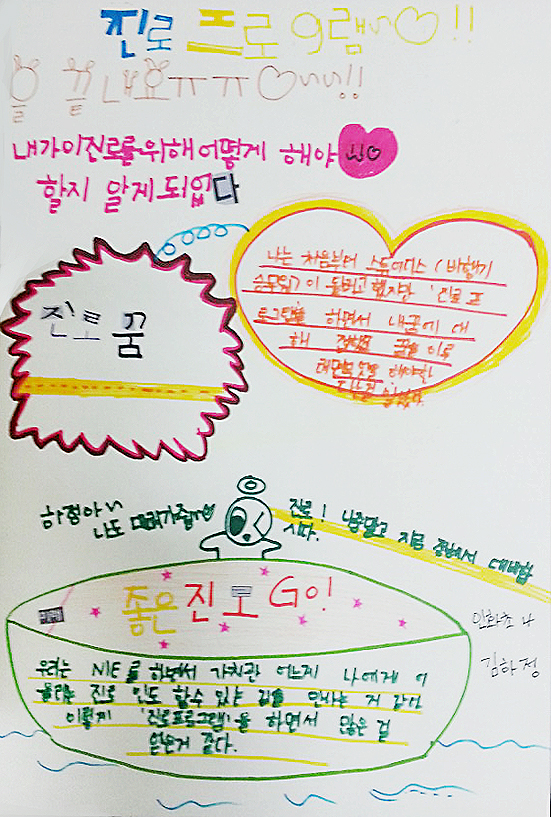 진로 프로 g램~♡!!
을 끝내요ㅠㅠ♡~~!!
내가 이 진로를 위해 어떻게 해야
할지 알게 되었다
진로 꿈
나는 처음부터 스튜어디스 (비행기
승무원)이 될라고 했지만 '진로 프
로그램'을 하면서 내꿈에 대
해 꿈을 이루
해야한
다는걸 알았다.
하정아~
나도 데려가줘~♥
진로! 나중말고 지금 준비해서 대비합
시다.
좋은 진로 GO!
우리는 NIE를 하면서 가치관 나에게 어
울리는 진로 인도 할수 있는 길을 만나는 거 같다
이렇게 '진로프로그램'을 하면서 많은 걸
얻은거 같다.
인화초 4
김하정